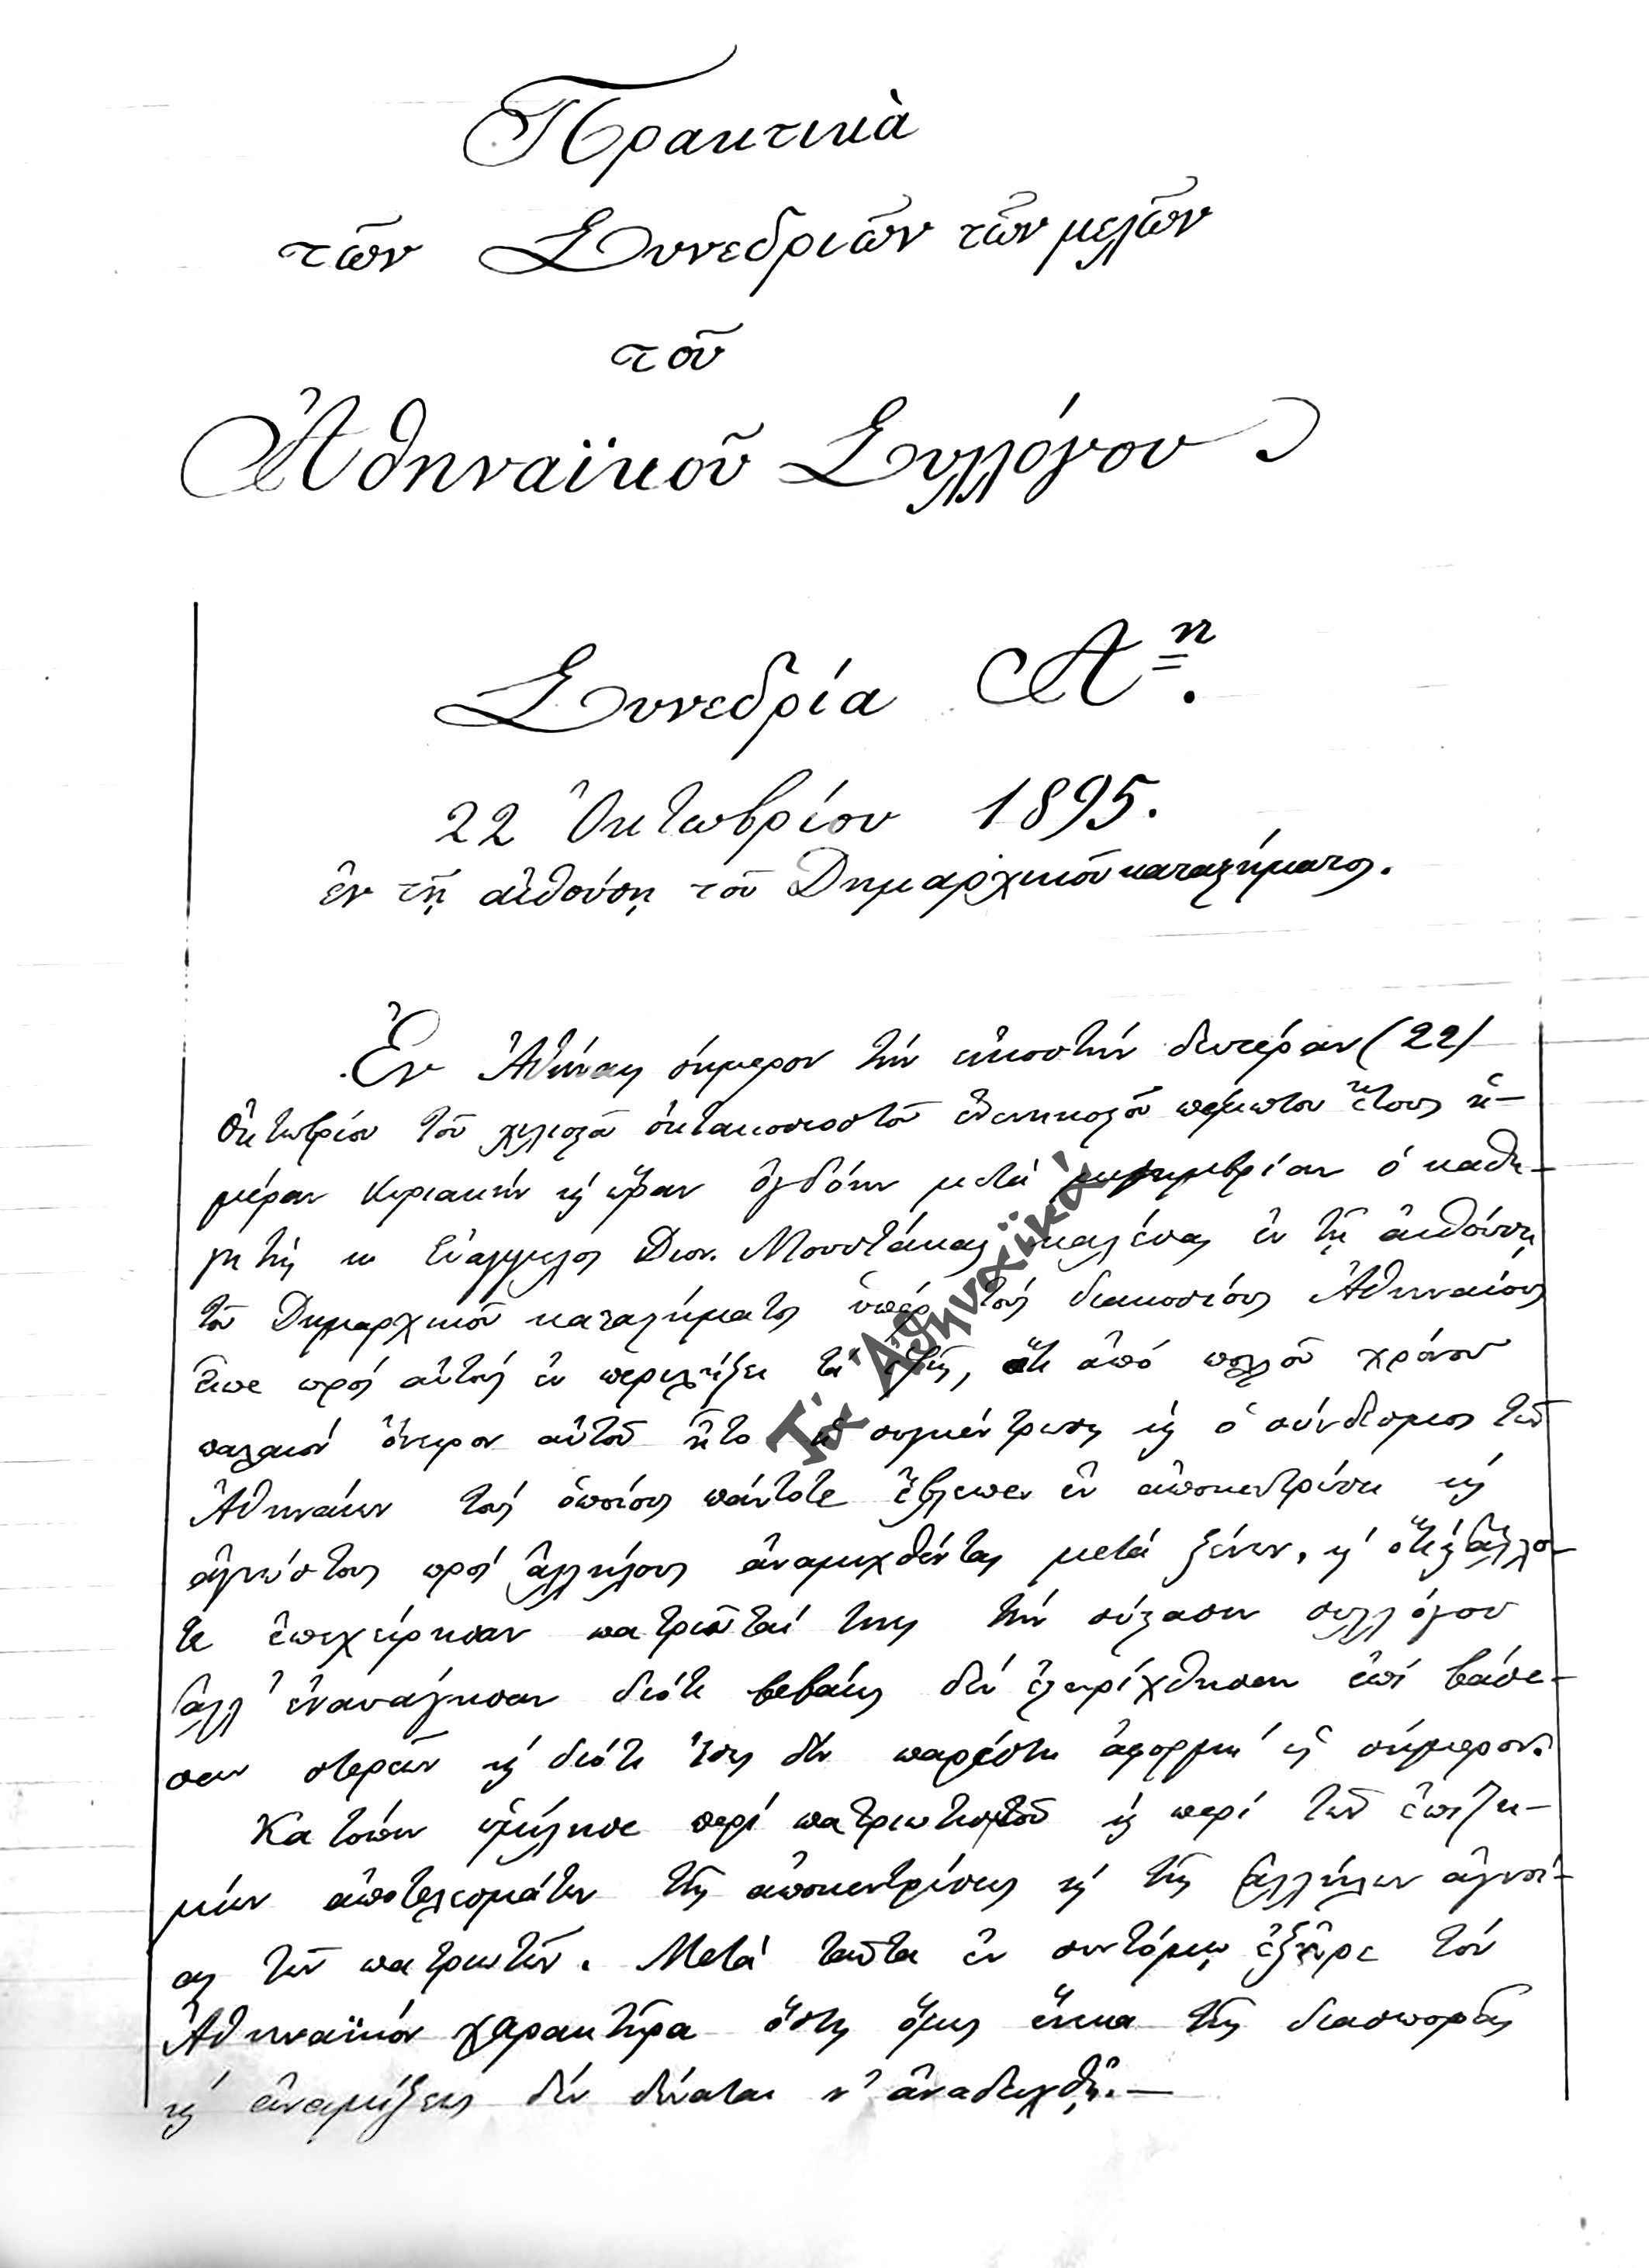 Πρακτικὰ
τῶν Συνεδριῶν τῶν μελῶν
τοῦ
Ἀθηναϊκοῦ Συλλόγου
Συνεδρία Αη.
22 Ὀκτωβρίου 1895.
ἐν τῇ αἰθούσῃ τοῦ Δημαρχικοῦ καταστήματος.
Ἐν Ἀθήναις σήμερον τὴν εἰκοστὴν δευτέραν (22)
Ὀκτωβρίου τοῦ χιλιοστοῦ ὀκτακοσιοστοῦ ἐνενηκοστοῦ πέμπτου ἔτους ἡ-
μέραν Κυριακὴν καὶ ὥραν ὀγδόην μετὰ μεσημβρίαν ὁ καθη-
γητὴς κ Εὐάγγελος Διον. Μουστάκας καλέσας ἐν τῇ αἰθούσῃ
τοῦ Δημαρχικοῦ καταστήματος ὑπὲρ τοὺς διακοσίους Ἀθηναίους
εἶπε πρὸς αὐτοὺς ἐν περιλήψει τὰ ἑξῆς, ὅτι ἀπὸ πολλοῦ χρόνου
παλαιὸν ὄνειρον αὐτοῦ ἦτο ἡ συγκέντρωσις καὶ ὁ σύνδεσμος τῶν
Ἀθηναίων τοὺς ὁποίους πάντοτε ἔβλεπεν ἐν ἀποκεντρώσει καὶ
ἀγνώστους πρὸς ἀλλήλους ἀναμιχθέντας μετὰ ξένων, καὶ ὅτι καὶ ἄλλο-
τε ἐπεχείρησαν πατριῶταί τινες τὴν σύστασιν συλλόγου
ἀλλ' ἐναυάγησαν διότι βεβαίως δὲν ἐστηρίχθησαν ἐπὶ βάσε-
ων στερεῶν καὶ διότι ἴσως δὲν παρέστη ἀφορμὴ ὡς σήμερον.
Κατόπιν ὡμίλησε περὶ πατριωτισμοῦ καὶ περὶ τῶν ἐπιζη-
μίων ἀποτελεσμάτων τῆς ἀποκεντρώσεως καὶ τῆς ἀλλήλων ἀγνοί-
ας τῶν πατριωτῶν. Μετὰ ταῦτα ἐν συντόμῳ ἐξῆρε τὸν
Ἀθηναϊκὸν χαρακτῆρα ὅστις ὅμως ἕνεκα τῆς διασπορᾶς
καὶ ἀναμίξεως δὲν δύναται ν' ἀναδειχθῇ.—
Τὰ Ἀθηναϊκά